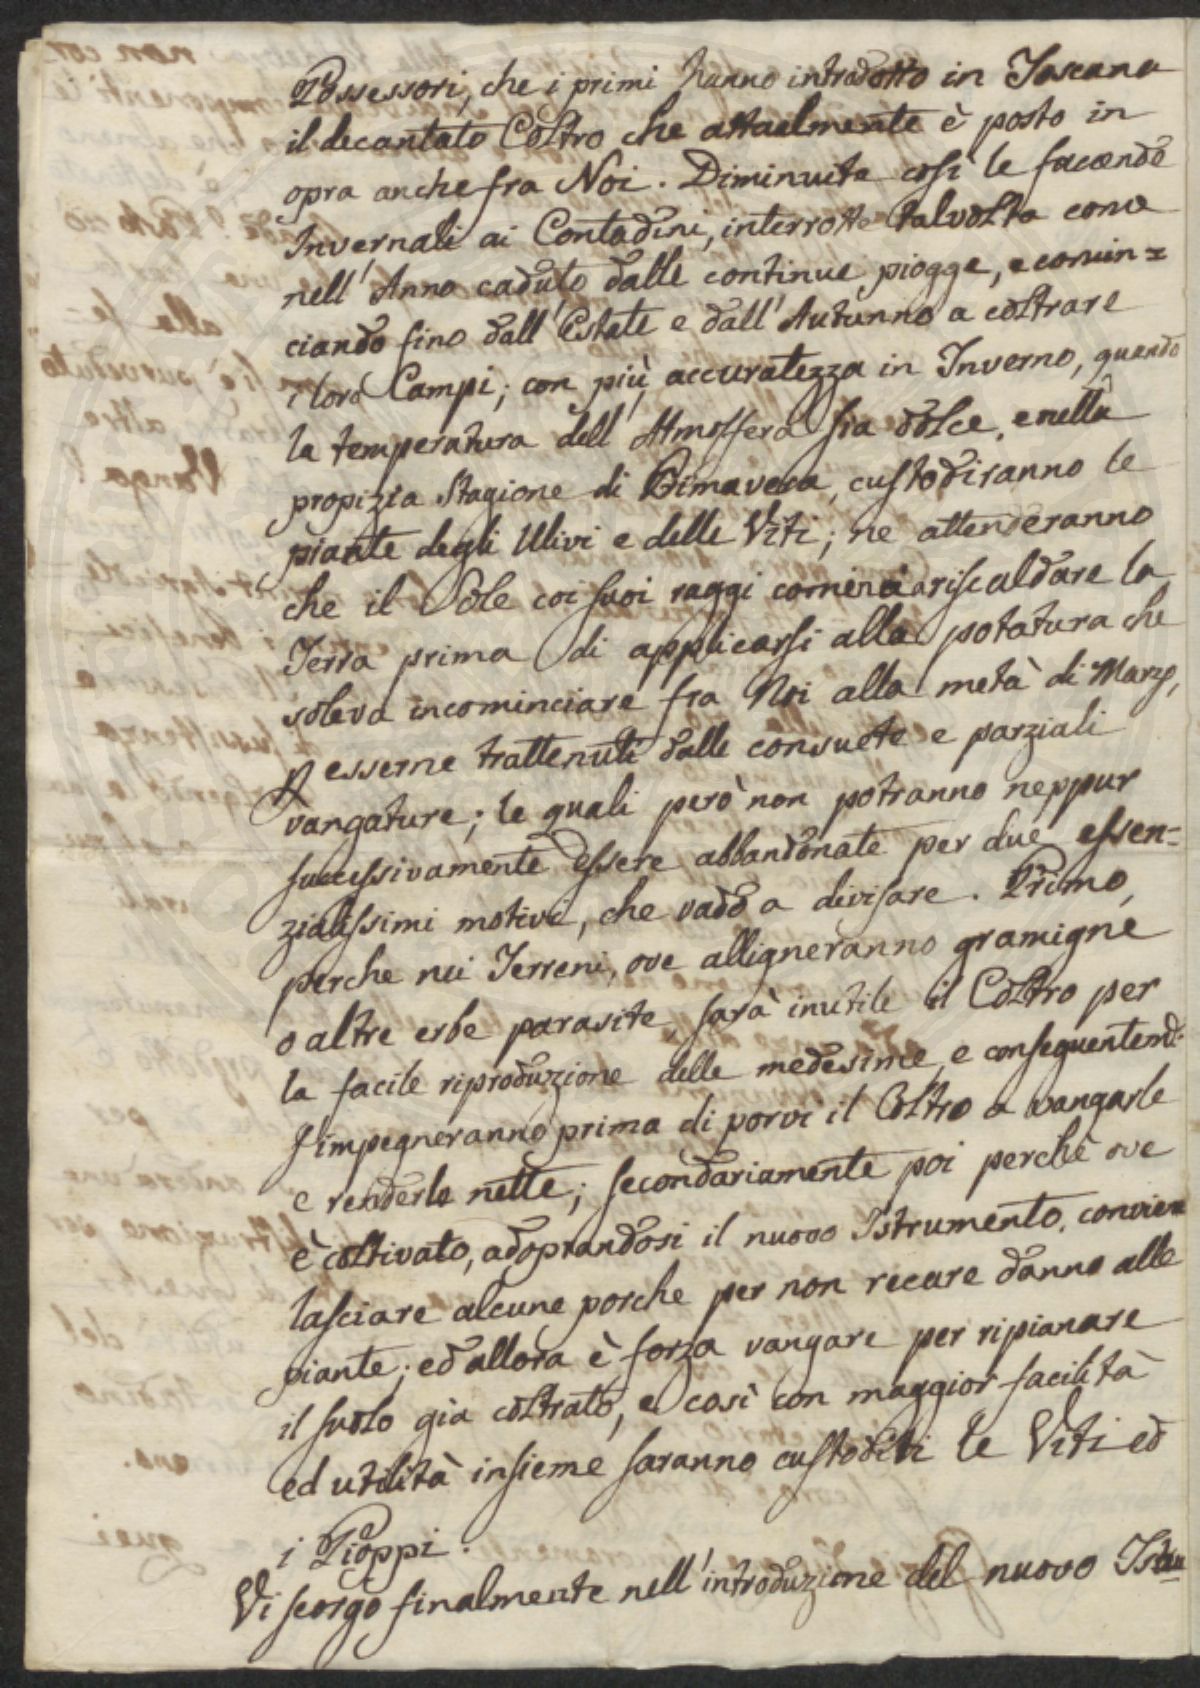 Possessori, che i primi hanno introdotto in Toscana
il decantato Coltro che attualmente è posto in
opra anche fra Noi. Diminuite così le faccende
Invernali ai Contadini, interrotte talvolta come
nell'Anno caduto dalle continue piogge, e comin=
ciando fino dall'Estate e dall'Autunno a coltrare
i loro Campi; con più accuratezza in Inverno, quando
la temperatura dell'Atmosfera sia dolce, e nella
propizia Stagione di Primavera, custodiranno le
piante degli Ulivi e delle Viti; ne attenderanno
che il Sole coi suoi raggi cominci a riscaldare la
Terra prima di applicarsi alla potatura che
soleva incominciare fra Noi alla metà di Marzo,
p esserne trattenuti dalle consuete e parziali
vangature; le quali però non potranno neppur
successivamente essere abbandonate per due essen=
zialissimi motivi, che vado a divisare. Primo,
perche nei Terreni, ove alligneranno gramigne
o altre erbe parasite, sarà inutile il Coltro per
la facile riproduzione delle medesime, e conseguentem.
s'impegneranno prima di porvi il Coltro a vangarle
e renderle nette; secondariamente poi perchè ove
è coltivato, adoprandosi il nuovo Istrumento, conviene
lasciare alcune porche per non recare danno alle
piante; ed allora è forza vangare per ripianare
il suolo già coltrato, e così con maggior facilità
ed utilità insieme saranno custoditi le Viti ed
i Pioppi.
Vi scorgo finalmente nell'introduzione del nuovo Istru=